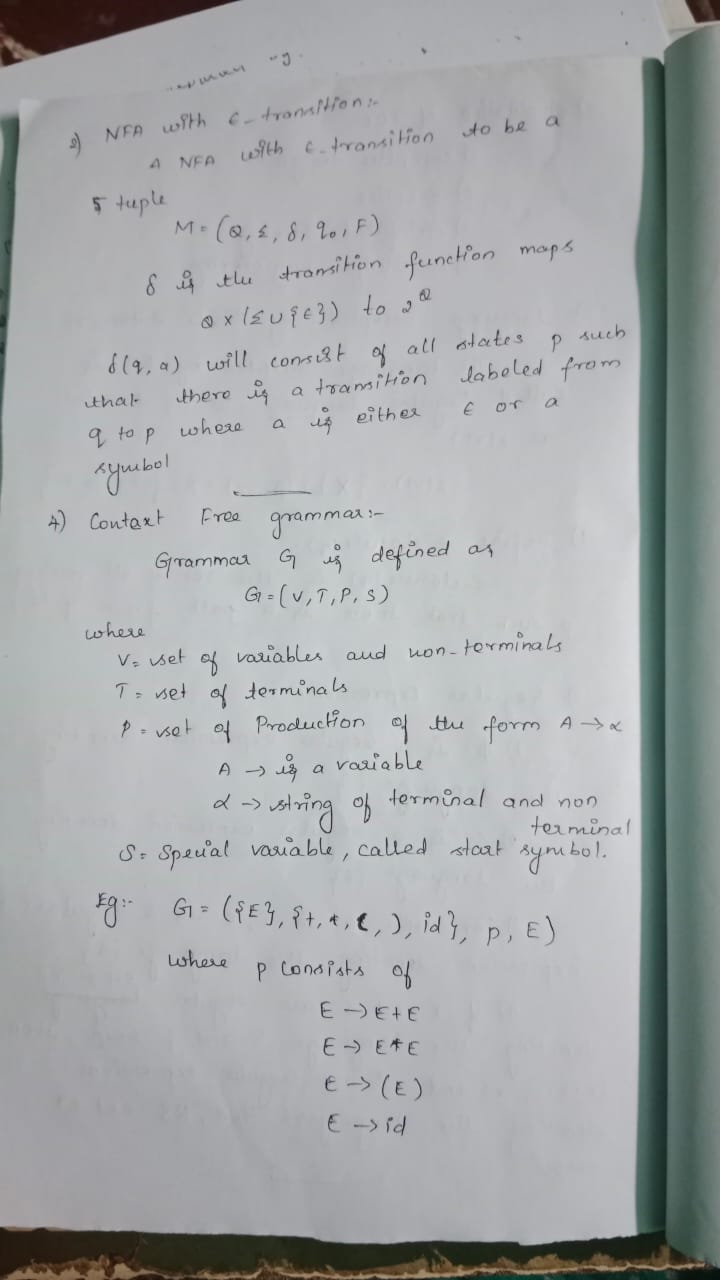 2) NFA with ε-transition:-
A NFA with ε-transition to be a
5 tuple
M = (Q, Σ, δ, q₀, F)
δ is the transition function maps
Q x (Σ ∪ {ε}) to 2^Q
δ(q, a) will consist of all states p such
that there is a transition labeled from
q to p where a is either ε or a
symbol
4) Contaxt Free grammar:-
Grammar G is defined as
G = (V, T, P, S)
where
V = set of variables and non-terminals
T = set of terminals
P = set of Production of the form A → α
A → is a variable
α → string of terminal and non
terminal
S = Special variable, called start symbol.
Eg:- G = ({E}, {+, *, (, ), id}, p, E)
where p consists of
E → E+E
E → E*E
E → (E)
E → id